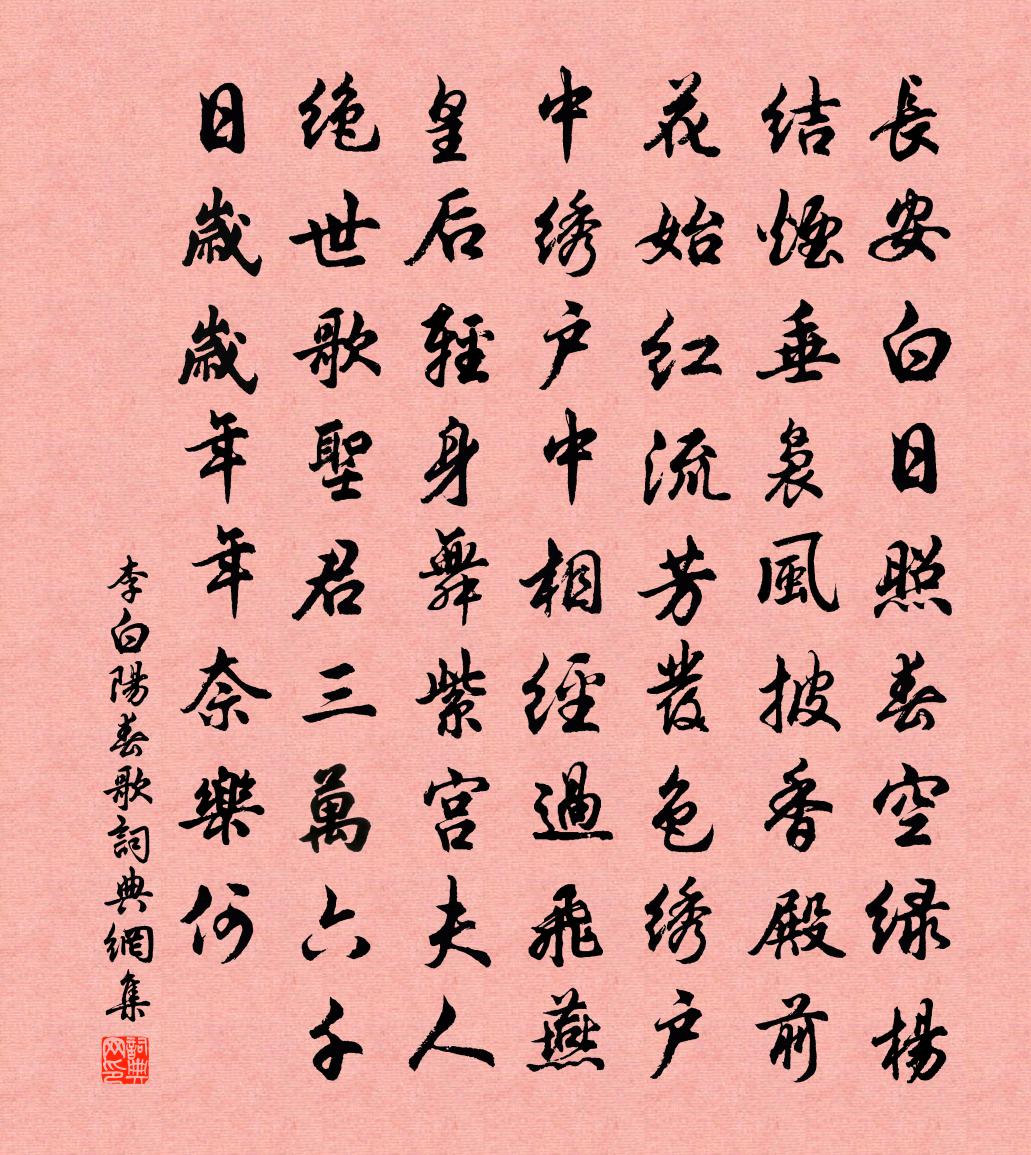 長安白日照春空绿楊
結煙垂裊風披香殿前
花始红流芳發色绣户
中绣户中相經過飛燕
皇后輕身舞紫宫夫人
绝世歌聖君三萬六千
日歲歲年年奈樂何
李白陽春歌詞典網集
詞典网印